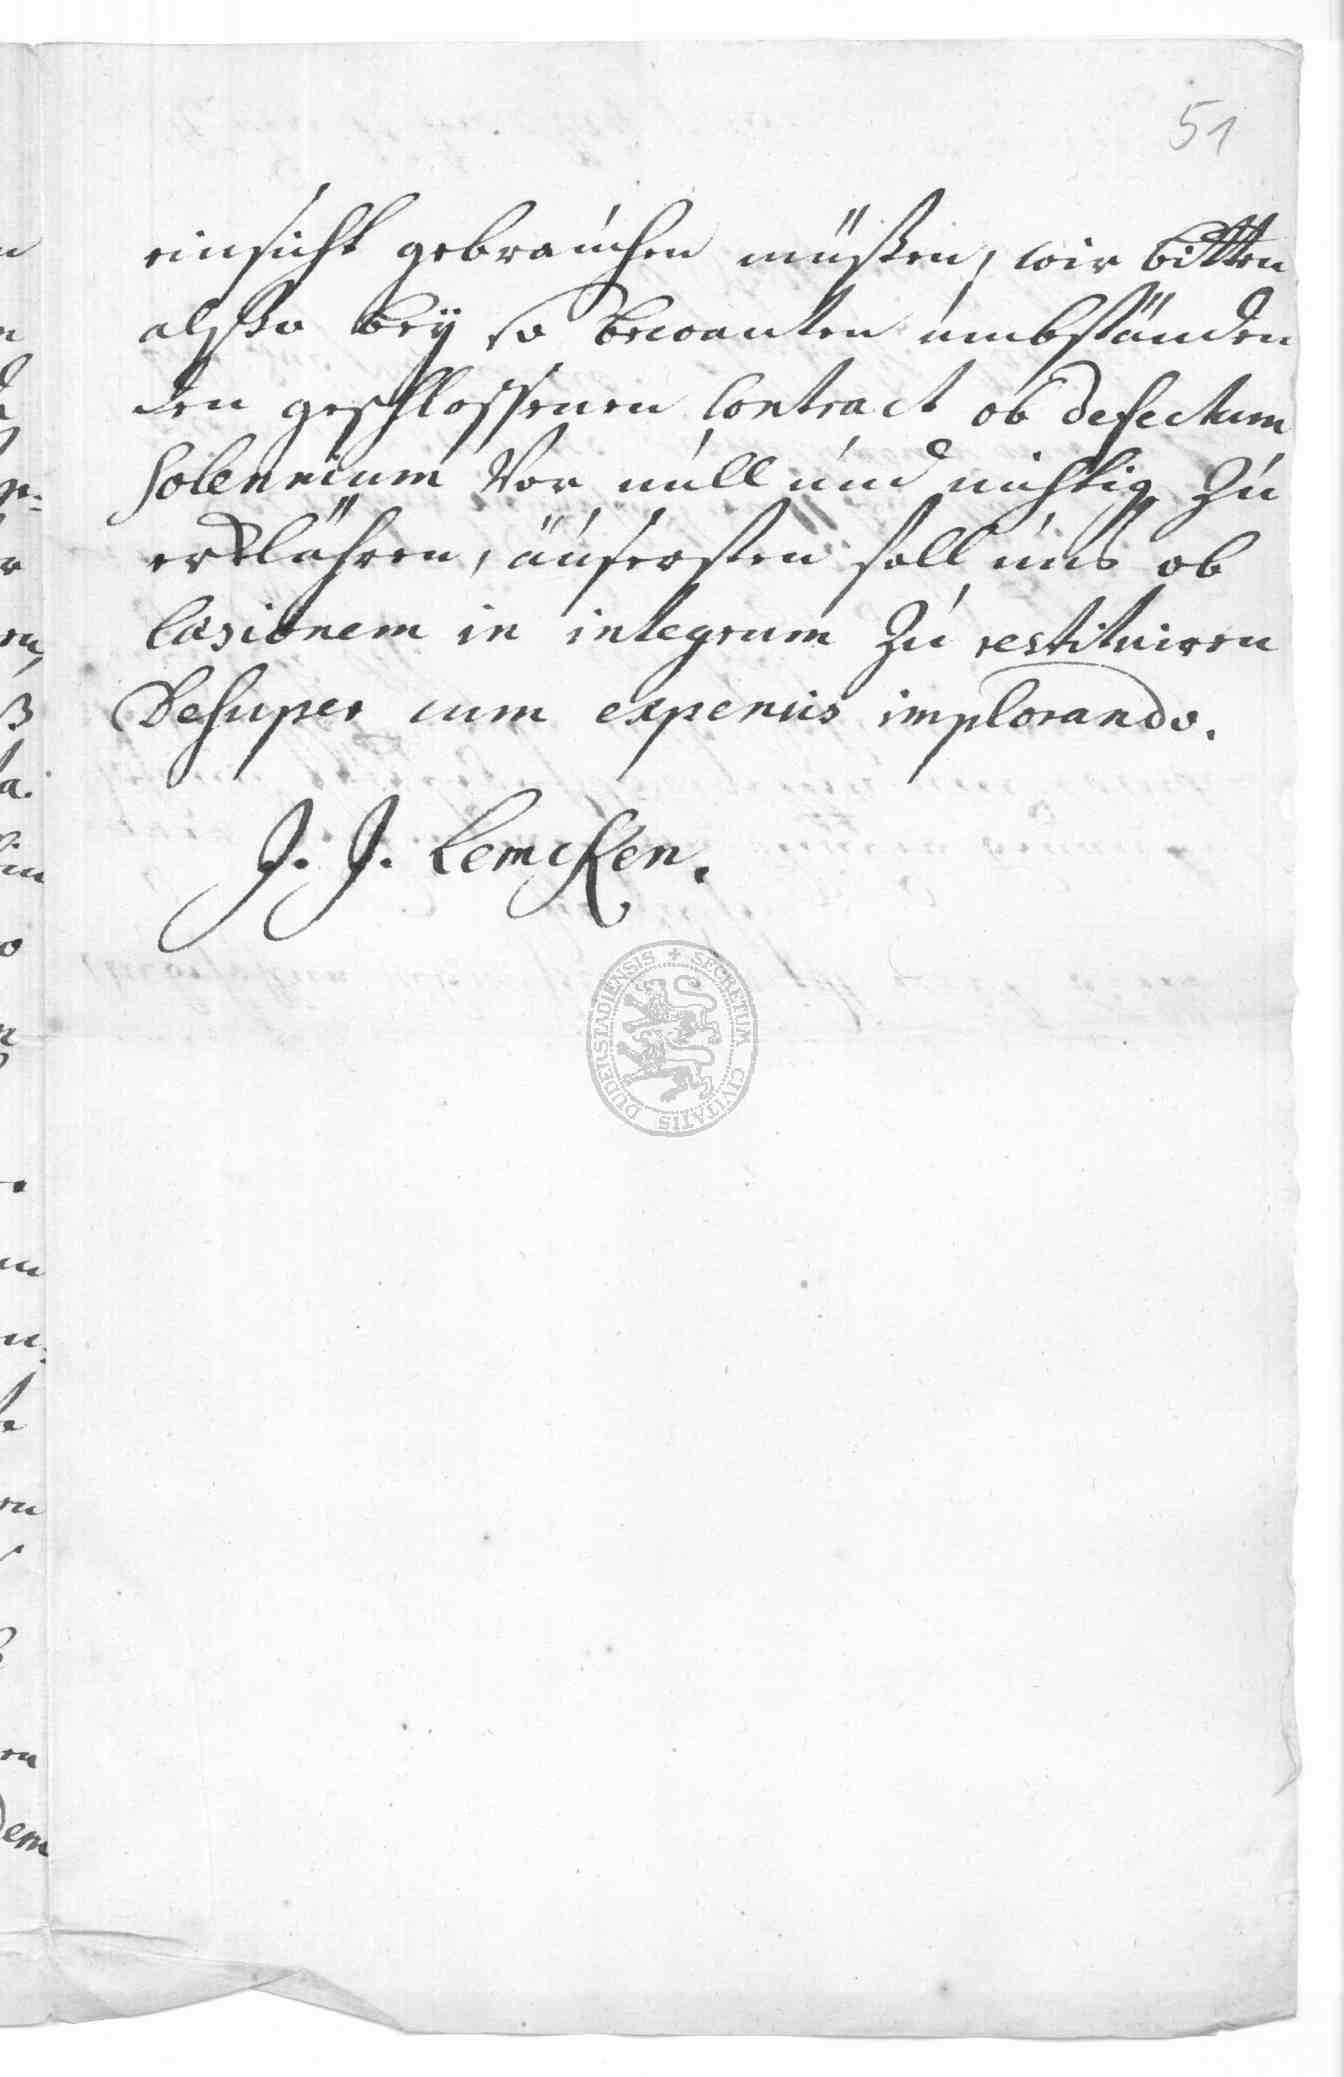 51
einsicht gebrauchen müßen, wir bitten
alßo beÿ so bewanten umbständen
den geschlossenen Contract ob defectum
solennium vor null und nichtig zu
erklähren, äusersten fall uns ob
laesionem in integrum zu restituiren
Desuper cum expensis implorando.
J. J. Lemcken.
SECRETUM CIVITATIS DUDERSTADIENSIS